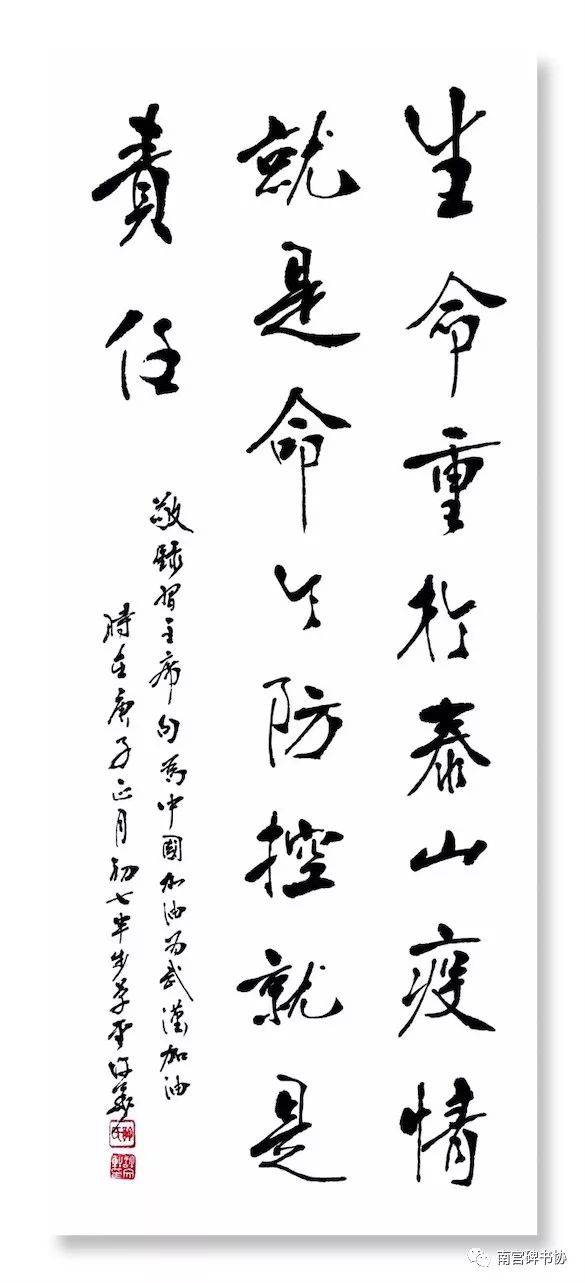 生命重於泰山疫情
就是命令防控就是
責任
敬録習主席句為中國加油为武漢加油
時在庚子正月初七半步草堂
南宫碑书协